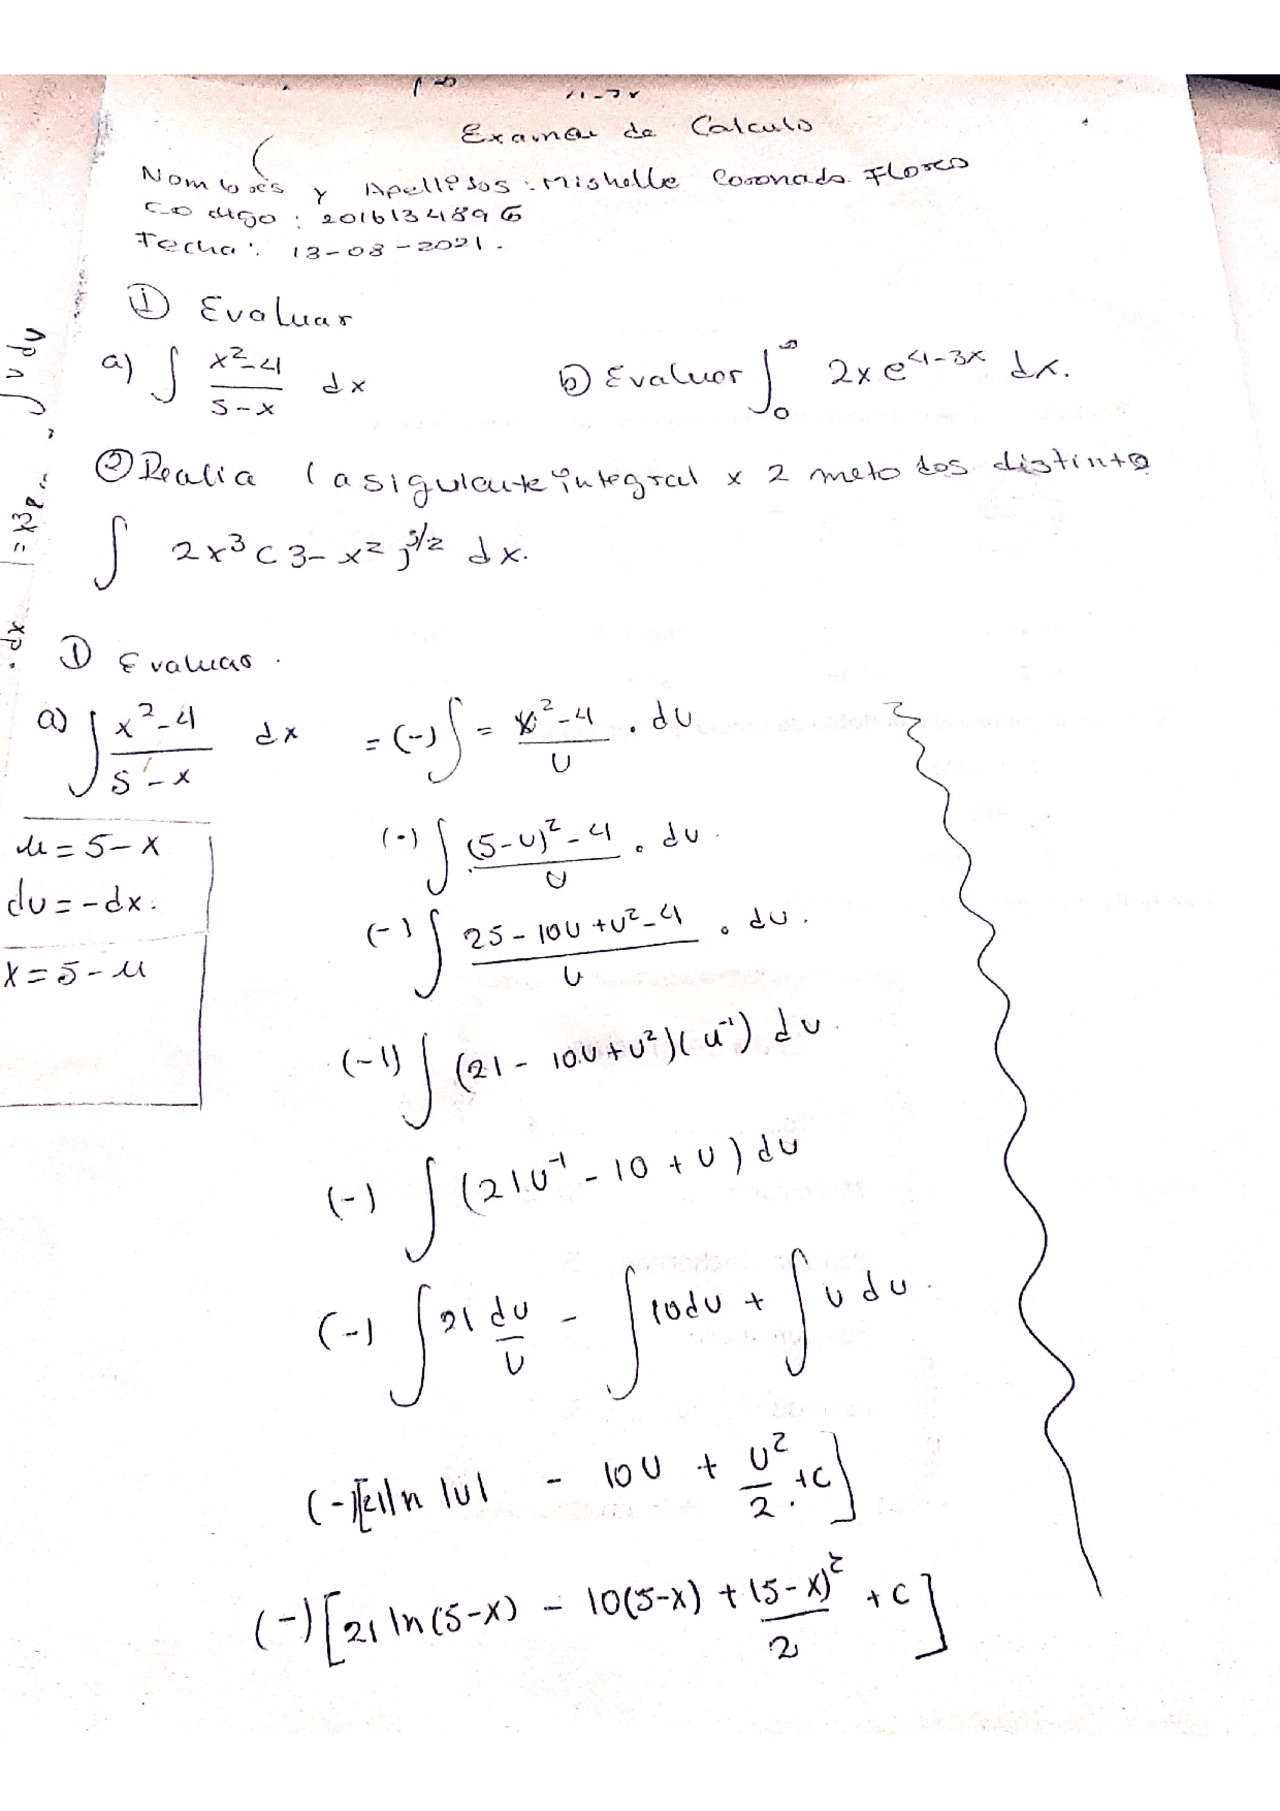 Examen de Calculo
Nombres y Apellidos: Mishelle Coronado Flores
Codigo: 2016134896
Fecha: 13-08-2021.
① Evaluar
a) ∫ (x²-4)/(5-x) dx   b) Evaluar ∫₀^∞ 2x e^(4-3x) dx.
② Realia la siguiente integral x 2 metodos distinto
∫ 2x³(3-x²)^(3/2) dx.
① Evaluar.
a) ∫ (x²-4)/(5-x) dx = (-)∫ = (x²-4)/u . du
u = 5-x
du = -dx.
x = 5-u
(-)∫ ((5-u)²-4)/u . du.
(-)∫ (25-10u+u²-4)/u . du.
(-1)∫ (21-10u+u²)(u⁻¹) du.
(-)∫ (21u⁻¹-10+u) du
(-)∫ 21 du/u - ∫ 10du + ∫ u du.
(-)[21ln |u| - 10u + u²/2 . +c]
(-)[21 ln(5-x) - 10(5-x) + (5-x)²/2 + c]